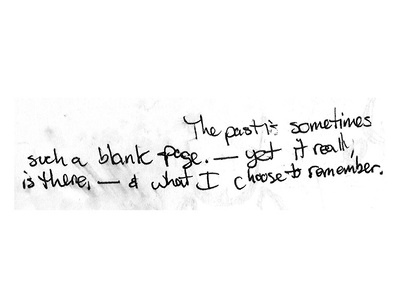 The past is sometimes
such a blank page. — yet it really
is there, — & what I choose to remember.